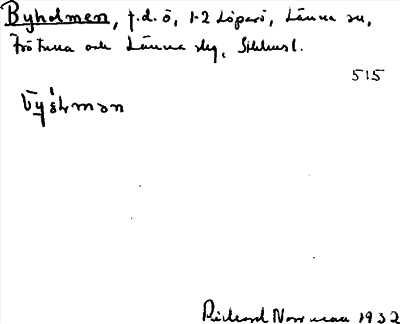 Byholmen, f.d. ö, 1-2 Löparö, Länna sn,
Frötuna och Länna skg, Sthlms l.
515
Richard Norrman 1932